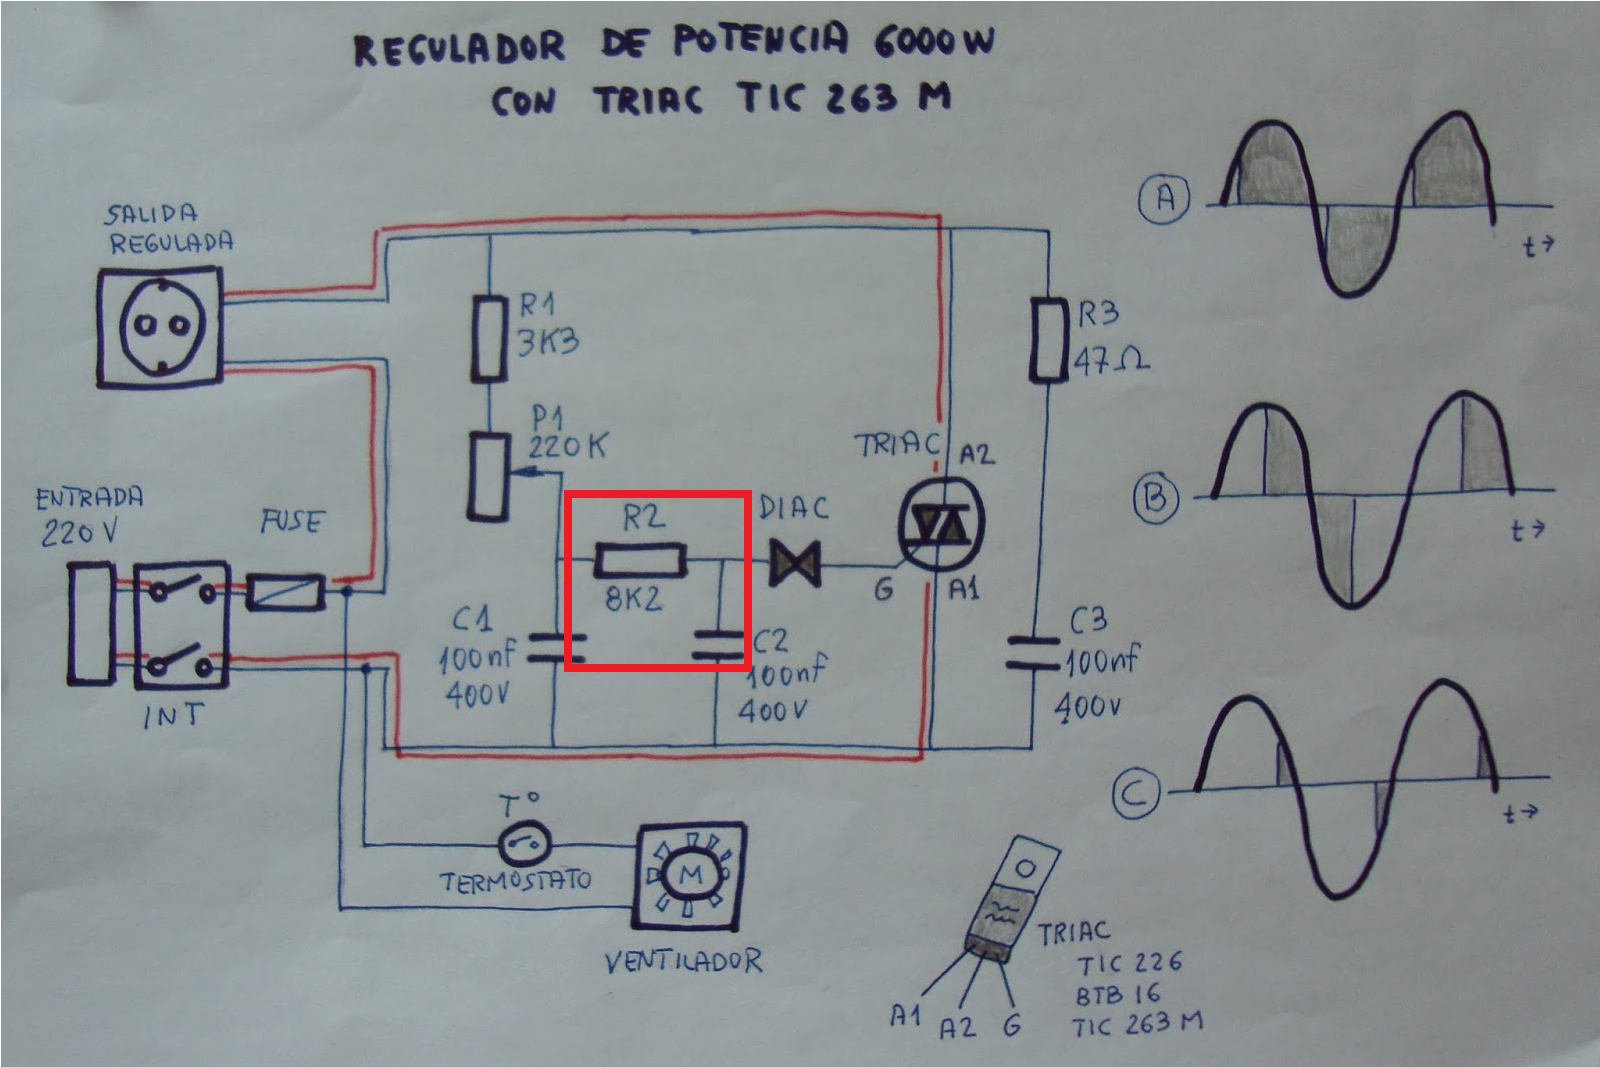 REGULADOR DE POTENCIA 6000W
CON TRIAC TIC 263 M
SALIDA
REGULADA
R1
3K3
P1
220K
R2
8K2
DIAC
TRIAC
A2
G
A1
R3
47Ω
C1
100nf
400V
C2
100nf
400V
C3
100nf
400V
ENTRADA
220V
FUSE
INT
T°
TERMOSTATO
M
VENTILADOR
A
t→
B
t→
C
t→
TRIAC
TIC 226
BTB 16
TIC 263 M
A1
A2
G